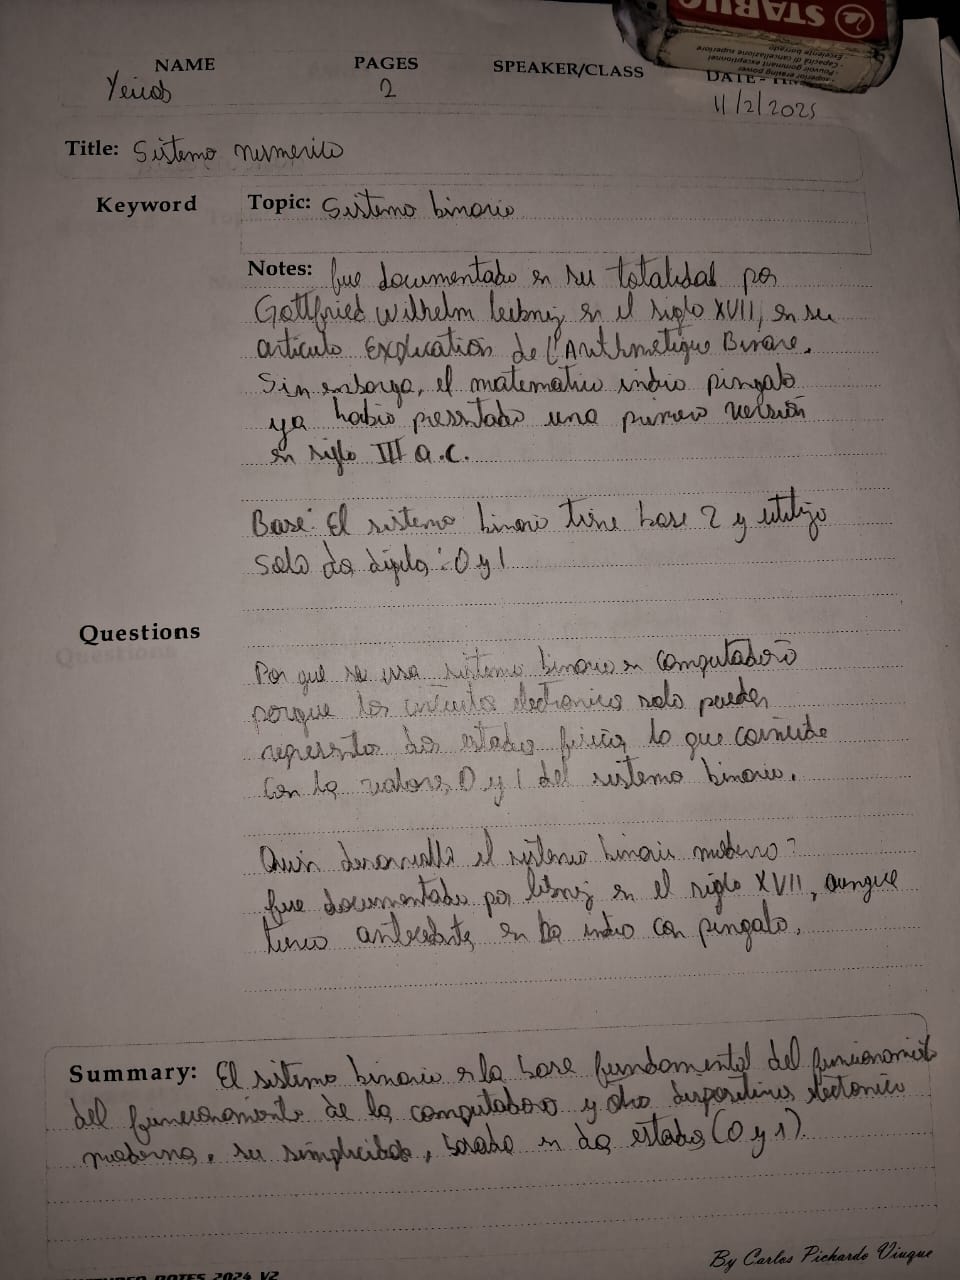 STABILO
superior erasing power
Pouvoir gommant exceptionnel
Capacità di cancellazione superiore
Excelente borrado
NAME PAGES SPEAKER/CLASS DATE - TIME
2
11/2/2025
Title: Sistema numerico
Keyword Topic: Sistema binario
Notes: fue documentado en su totalidad por
Gottfried Wilhelm leibniz en el siglo XVII, en su
articulo Explication de l'Arithmetique Binare.
Sin enbarga, el matematico indio pingala
ya habia presentado una primera versión
en siglo III a.c.
Base: El sistema binario tiene base 2 y utiliza
solo dos digitos: 0 y 1
Questions
Por que se usa sistema binario en computadora
porque los circuitos electronicos solo pueden
representar dos estados fisicos, lo que coincide
con los valores 0 y 1 del sistema binario.
Quien desarrolla el sistema binario moderno?
fue documentado por libniz en el siglo XVII, aunque
tiene antecedentes en la india con pingala.
Summary: El sistema binario es la base fundamental del funcionamiento
del funcionamiento de la computadora y otro dispositivos electronico
moderno, su simplicidad, basado en dos estados (0 y 1).
By Carlos Pichardo Viuque
NOTES 2024 V2